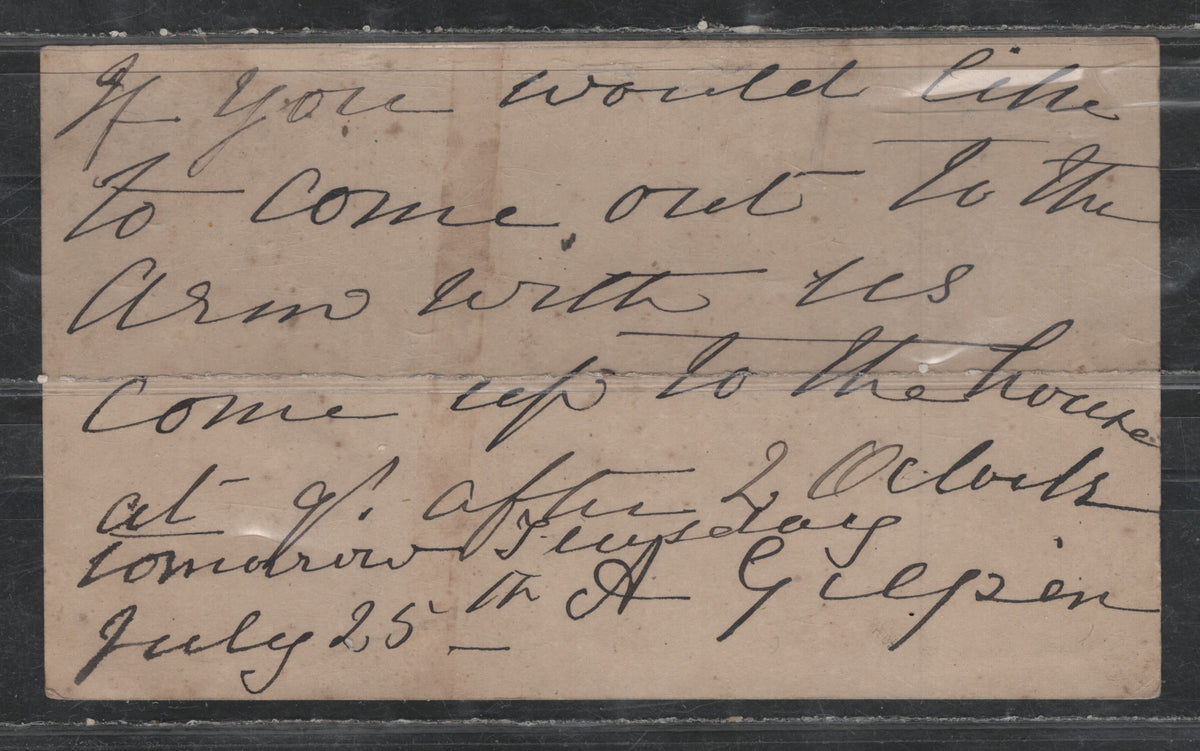 If you would like
to come out to the
Arm with us
come up to the house
at qr. after 2 Oclock
tomorrow Tuesday
July 25th A Gilpin